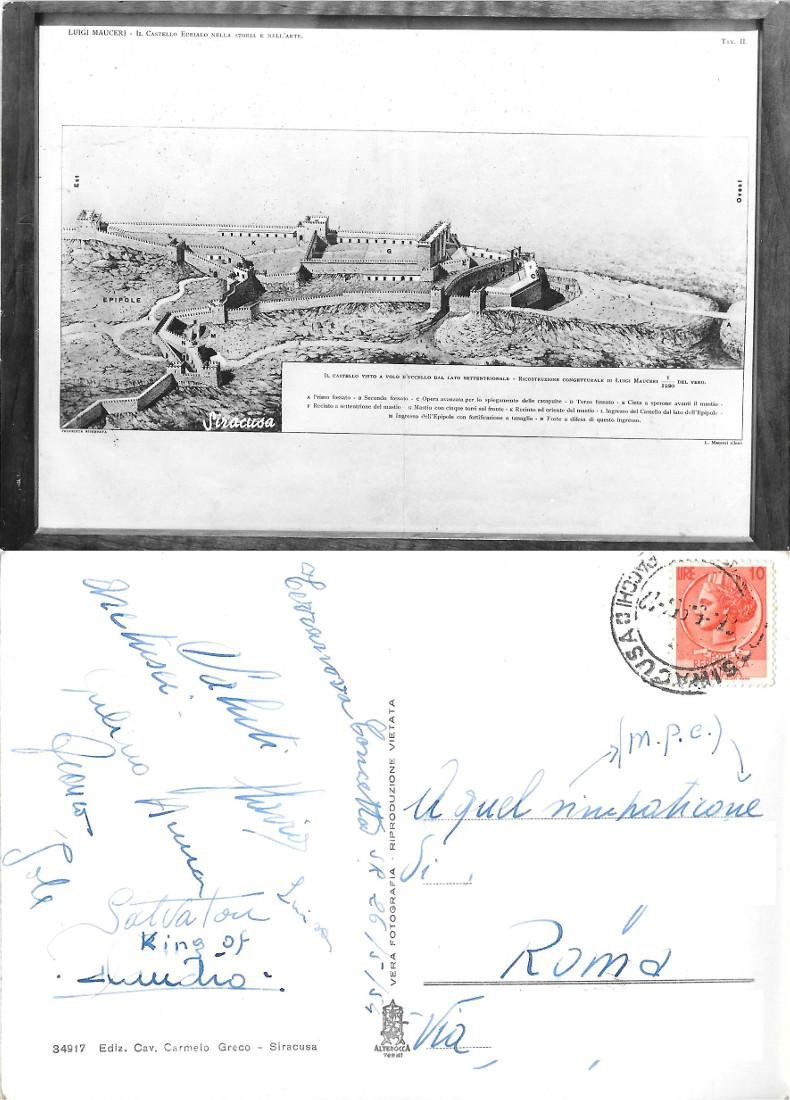 LUIGI MAUCERI - IL CASTELLO EURIALO NELLA STORIA E NELL'ARTE.
TAV. II.
Est
Ovest
K
G
EPIPOLE
A
IL CASTELLO VISTO A VOLO D'UCCELLO DAL LATO SETTENTRIONALE - RICOSTRUZIONE CONGETTURALE DI LUIGI MAUCERI 1/1280 DEL VERO.
A Primo fossato - B Secondo fossato - C Opera avanzata per lo spiegamento delle catapulte - D Terzo fossato - E Cinta a sperone avanti il mastio -
F Recinto a settentrione del mastio - G Mastio con cinque torri sul fronte - K Recinto ad oriente del mastio - L Ingresso del Castello dal lato dell'Epipole -
M Ingresso dell'Epipoli con fortificazione a tanaglia - N Forte a difesa di questo ingresso.
Siracusa
PROPRIETÀ RISERVATA
L. Mauceri
LIRE 10
SIRACUSA
PACCHI
(m.p.c.)
A quel simpaticone
di
Roma
Via
Saluti
Anna
Luisa
Salvatore
King of
Claudio
Terranova Concetta SR 26/5/54
VERA FOTOGRAFIA - RIPRODUZIONE VIETATA
ALTEROCCA
TERNI
34917 Ediz. Cav. Carmelo Greco - Siracusa